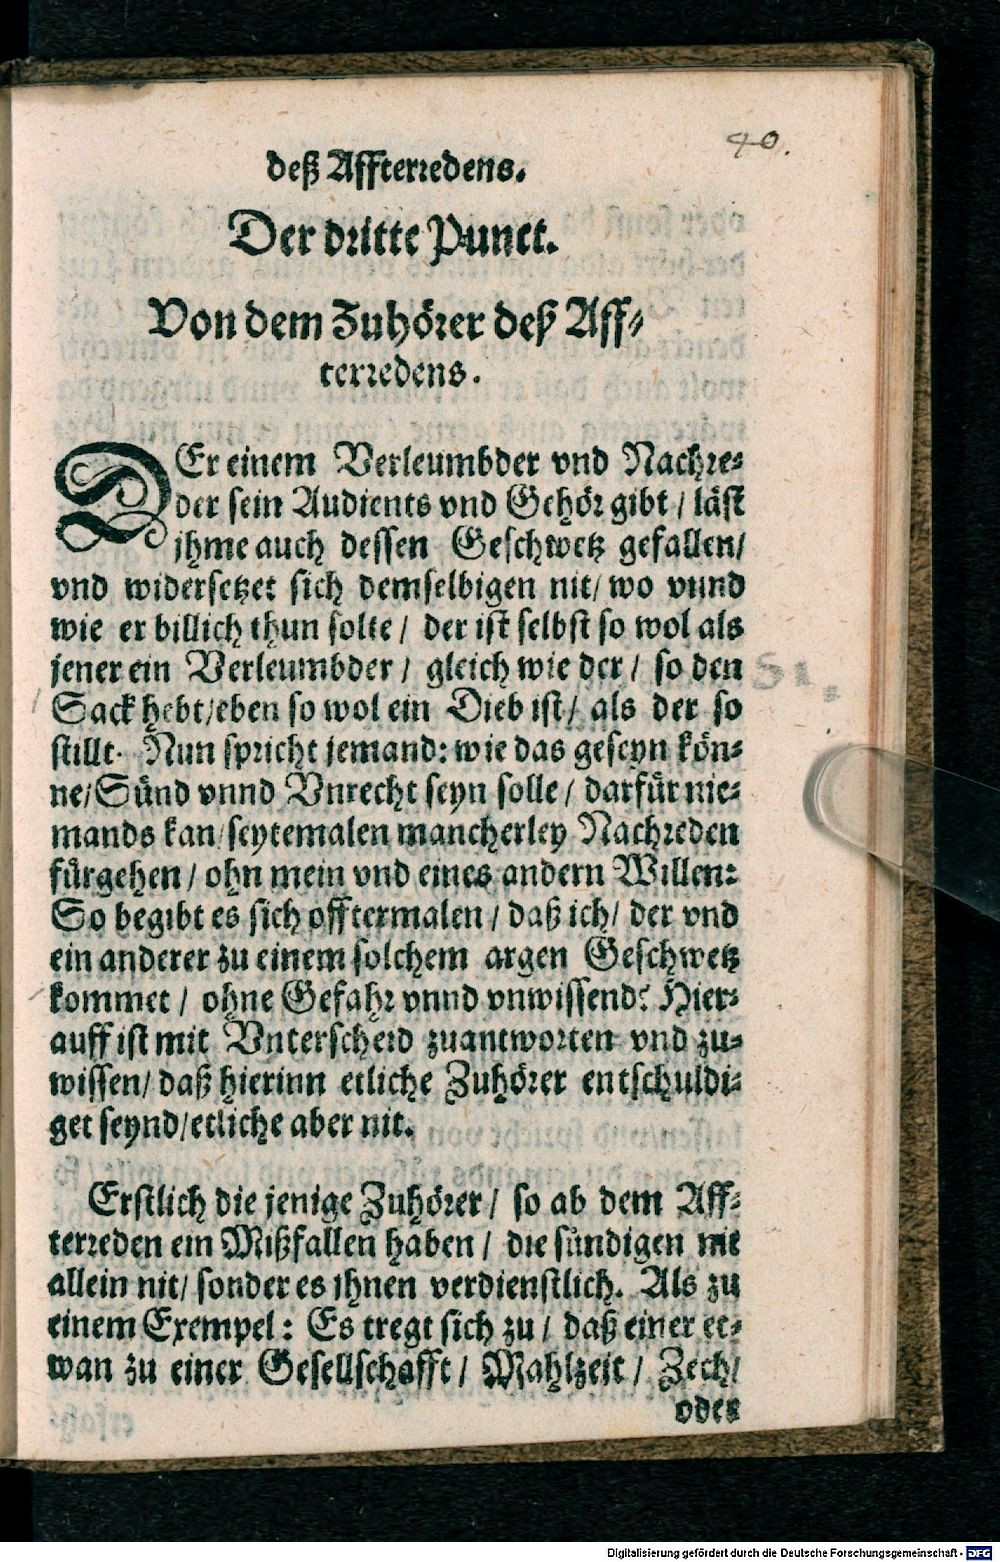 40.
deß Affterredens.
Der dritte Punct.
Von dem Zuhörer deß Aff⸗
terredens.
DEr einem Verleumbder vnd Nachre⸗
der sein Audients vnd Gehör gibt / läst
jhme auch dessen Geschwetz gefallen/
vnd widersetzet sich demselbigen nit/ wo vnnd
wie er billich thun solte / der ist selbst so wol als
jener ein Verleumbder / gleich wie der / so den
Sack hebt/eben so wol ein Dieb ist/ als der so
stillt. Nun spricht jemand: wie das geseyn kön⸗
ne/Sünd vnnd Vnrecht seyn solle / darfür nie⸗
mands kan/seytemalen mancherley Nachreden
fürgehen / ohn mein vnd eines andern Willen:
So begibt es sich offtermalen / daß ich/ der vnd
ein anderer zu einem solchem argen Geschwetz
kommet / ohne Gefahr vnnd vnwissend? Hier⸗
auff ist mit Vnterscheid zuantworten vnd zu⸗
wissen/ daß hierinn etliche Zuhörer entschuldi⸗
get seynd/etliche aber nit.
Erstlich die jenige Zuhörer / so ab dem Aff⸗
terreden ein Mißfallen haben / die sündigen nit
allein nit/ sonder es ihnen verdienstlich. Als zu
einem Exempel: Es tregt sich zu / daß einer et⸗
wan zu einer Gesellschafft / Mahlzeit / Zech/
oder
Digitalisierung gefördert durch die Deutsche Forschungsgemeinschaft - DFG